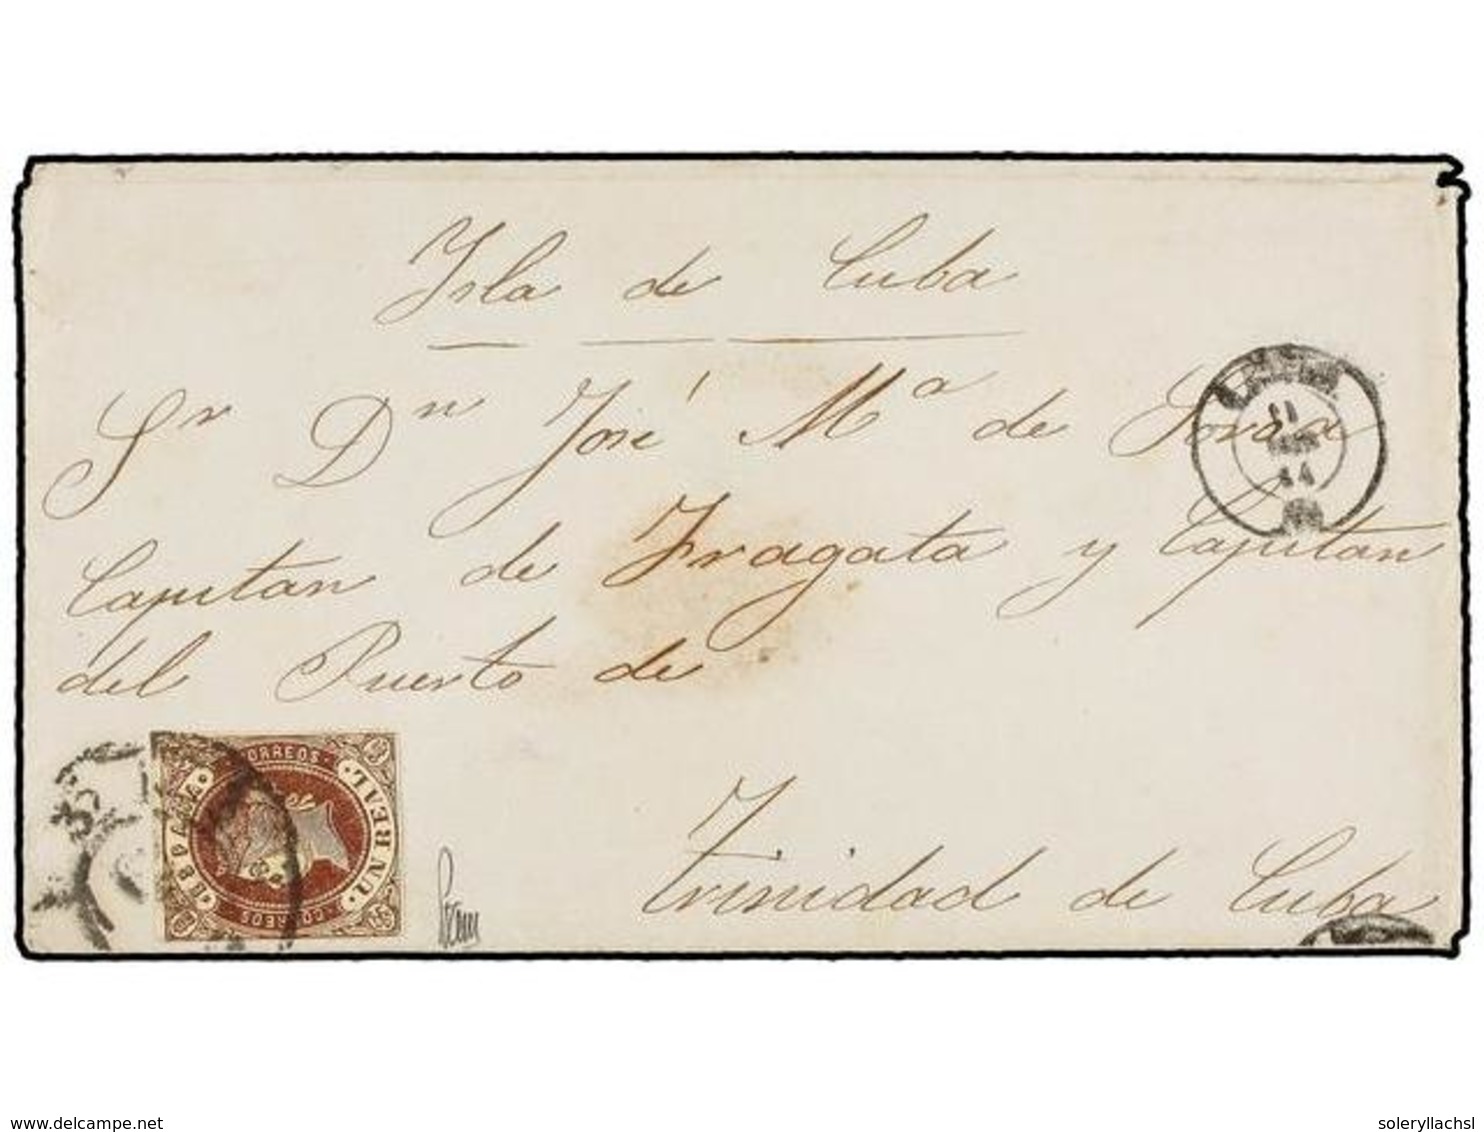 Isla de Cuba
Sr Dn José Mª de
Capitan de Fragata y Capitan
del Puerto de
Trinidad de Cuba
CORREOS
UN REAL
CORREOS
11
delcampe.net
soleryllachsl